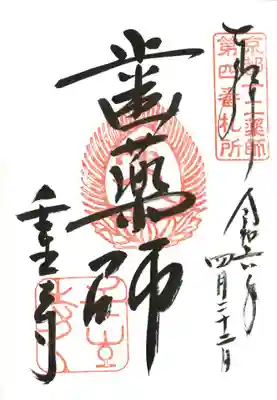 京都十二薬師
第四番札所
奉拝
令和六年
四月二十二日
歯薬師
壬生寺